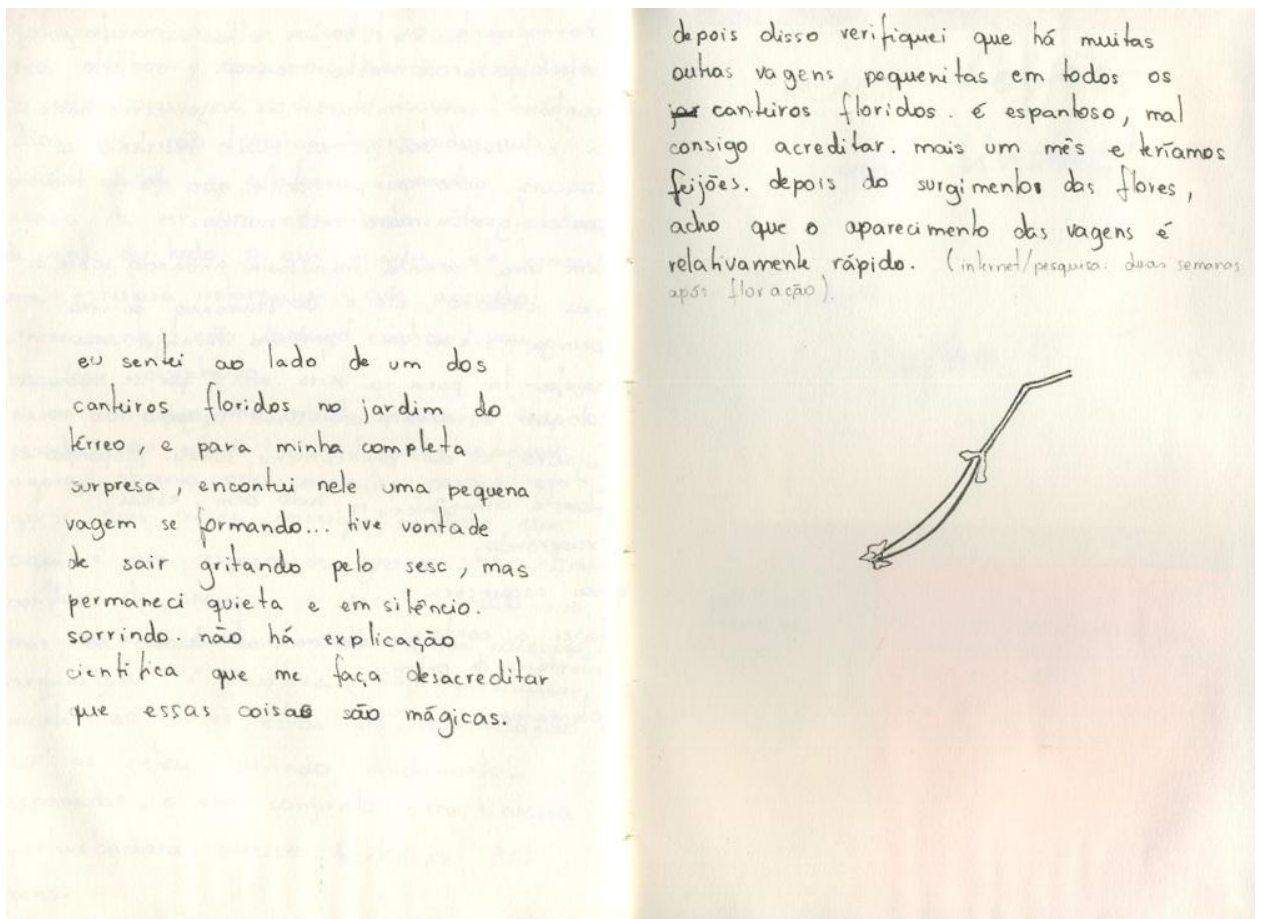 eu sentei ao lado de um dos
canteiros floridos no jardim do
térreo, e para minha completa
surpresa, encontrei nele uma pequena
vagem se formando... tive vontade
de sair gritando pelo sesc, mas
permaneci quieta e em silêncio.
sorrindo. não há explicação
científica que me faça desacreditar
que essas coisas são mágicas.
depois disso verifiquei que há muitas
outras vagens pequenitas em todos os
canteiros floridos. é espantoso, mal
consigo acreditar. mais um mês e teríamos
feijões. depois do surgimento das flores,
acho que o aparecimento das vagens é
relativamente rápido. (internet/pesquisa: duas semanas
após floração).